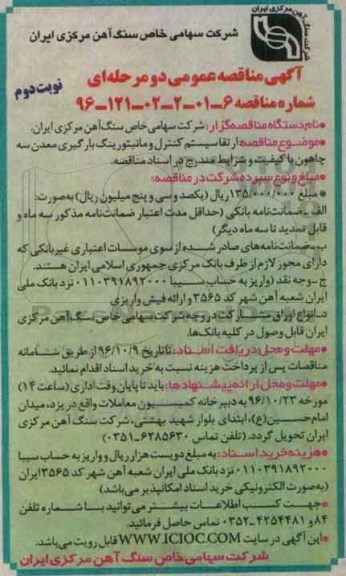 شرکت سهامی خاص سنگ آهن مرکزی ایران
آگهی مناقصه عمومی دو مرحله‌ای
نوبت دوم
شماره مناقصه ۶-۰۱-۲-۰۲-۱۲۱-۹۶
•نام دستگاه مناقصه‌گزار: شرکت سهامی خاص سنگ‌آهن مرکزی ایران.
•موضوع مناقصه: ارتقا سیستم کنترل و مانیتورینگ بارگیری معدن سه
چاهون با کیفیت و شرایط مندرج در اسناد مناقصه.
•مبلغ و نوع سپرده شرکت در مناقصه:
•مبلغ ۱۳۵/۰۰۰/۰۰۰ ریال (یکصد و سی و پنج میلیون ریال) به‌صورت:
الف-ضمانت‌نامه بانکی (حداقل مدت اعتبار ضمانت‌نامه مذکور سه ماه و
قابل تمدید تا سه ماه دیگر)
ب-ضمانت‌نامه‌های صادر شده از سوی موسسات اعتباری غیربانکی که
دارای مجوز لازم از طرف بانک مرکزی جمهوری اسلامی ایران هستند.
ج-وجه نقد (واریز به حساب سیبا ۰۱۱۰۳۹۱۸۹۲۰۰۰ نزد بانک ملی
ایران شعبه آهن شهر کد ۳۵۶۵ و ارائه فیش واریزی
د-انواع اوراق مشارکت در وجه شرکت سهامی خاص سنگ‌آهن مرکزی
ایران قابل وصول در کلیه بانک‌ها.
•مهلت و محل دریافت اسناد: تا تاریخ ۹۶/۱۰/۹ از طریق سامانه
مناقصات پس از پرداخت هزینه نسبت به خرید اسناد اقدام نمائید.
•مهلت و محل ارائه پیشنهادها: باید تا پایان وقت اداری (ساعت ۱۴)
مورخه ۹۶/۱۰/۲۳ به دبیرخانه کمیسیون معاملات واقع در یزد، میدان
امام حسین(ع)، ابتدای بلوار شهید بهشتی، شرکت سنگ آهن مرکزی
ایران تحویل گردد. (تلفن تماس ۶۲۸۵۶۳۰-۰۳۵۱)
•هزینه خرید اسناد: به مبلغ دویست هزار ریال و واریز به حساب سیبا
۰۱۱۰۳۹۱۸۹۲۰۰۰ نزد بانک ملی ایران شعبه آهن شهر کد ۳۵۶۵ ایران
(به‌صورت الکترونیکی خرید اسناد امکانپذیر می‌باشد)
•جهت کسب اطلاعات بیشتر می‌توانید با شماره تلفن
۸۴ و ۴۲۵۴۴۸۱-۰۳۵۲ تماس حاصل فرمائید.
•این آگهی در سایت WWW.ICIOC.COM قابل رویت می‌باشد.
شرکت سهامی خاص سنگ آهن مرکزی ایران